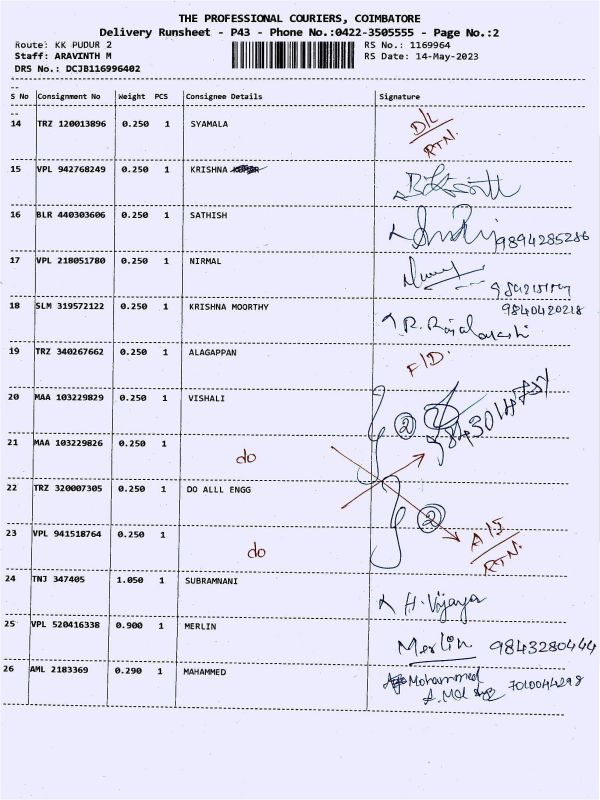 THE PROFESSIONAL COURIERS, COIMBATORE
Delivery Runsheet - P43 - Phone No.:0422-3505555 - Page No.:2
Route: KK PUDUR 2 RS No.: 1169964
Staff: ARAVINTH M RS Date: 14-May-2023
DRS No.: DCJB116996402
S No Consignment No Weight PCS Consignee Details Signature
14 TRZ 120013896 0.250 1 SYAMALA D/L
RTN.
15 VPL 942768249 0.250 1 KRISHNA
16 BLR 440303606 0.250 1 SATHISH 9894285286
17 VPL 218051780 0.250 1 NIRMAL
18 SLM 319572122 0.250 1 KRISHNA MOORTHY 9840420218
R. Rajalakshi
19 TRZ 340267662 0.250 1 ALAGAPPAN F/D.
20 MAA 103229829 0.250 1 VISHALI 2
21 MAA 103229826 0.250 1 do
22 TRZ 320007305 0.250 1 DO ALLL ENGG 2
23 VPL 941518764 0.250 1 do A/S
RTN.
24 TNJ 347405 1.050 1 SUBRAMNANI H. Vijaya
25 VPL 520416338 0.900 1 MERLIN Merlin 9843280444
26 AML 2183369 0.290 1 MAHAMMED Mohammed 7010044298